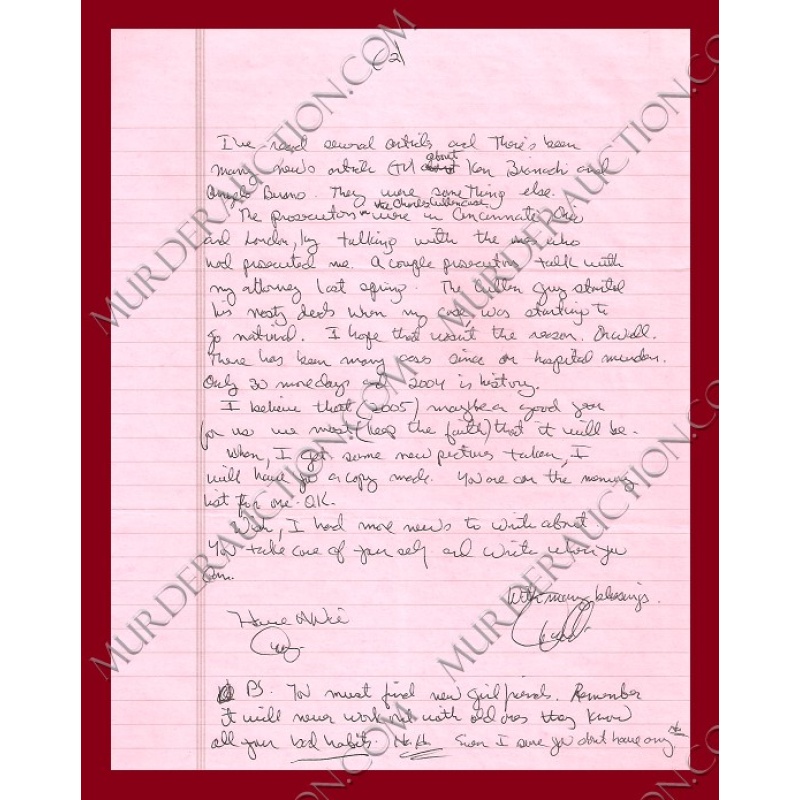 (2)
I've read several articls and There's been
many news article (TV) about Ken Bianchi and
Angelo Buono. They were something else.
The prosecutors in the Charles Cullen case were in Cincinnate, Ohio
and London, Ky talking with the ones who
had prosecuted me. A couple prosecutors talk with
my attorney last spring. The Cullen guy started
his nasty deeds when my case, was starting to
go natural. I hope that wasn't the reason. Oh well.
There has been many cases since on hospital murders.
Only 30 more days and 2004 is history.
I believe that (2005) maybe a good year
for us we must (keep the faith) that it will be.
When, I get some new pictures taken, I
will have for a copy made. You are on the
list for one. OK.
Wish, I had more news to write about.
You take care of your self and write when you
can.
With many blessings.
Have A Nice
Day.
PS. You must find new girlfriends. Remember
it will never work out with old ones they know
all your bad habits. Ha. Ha. Even I sure you don't have any.
MURDERAUCTION.COM